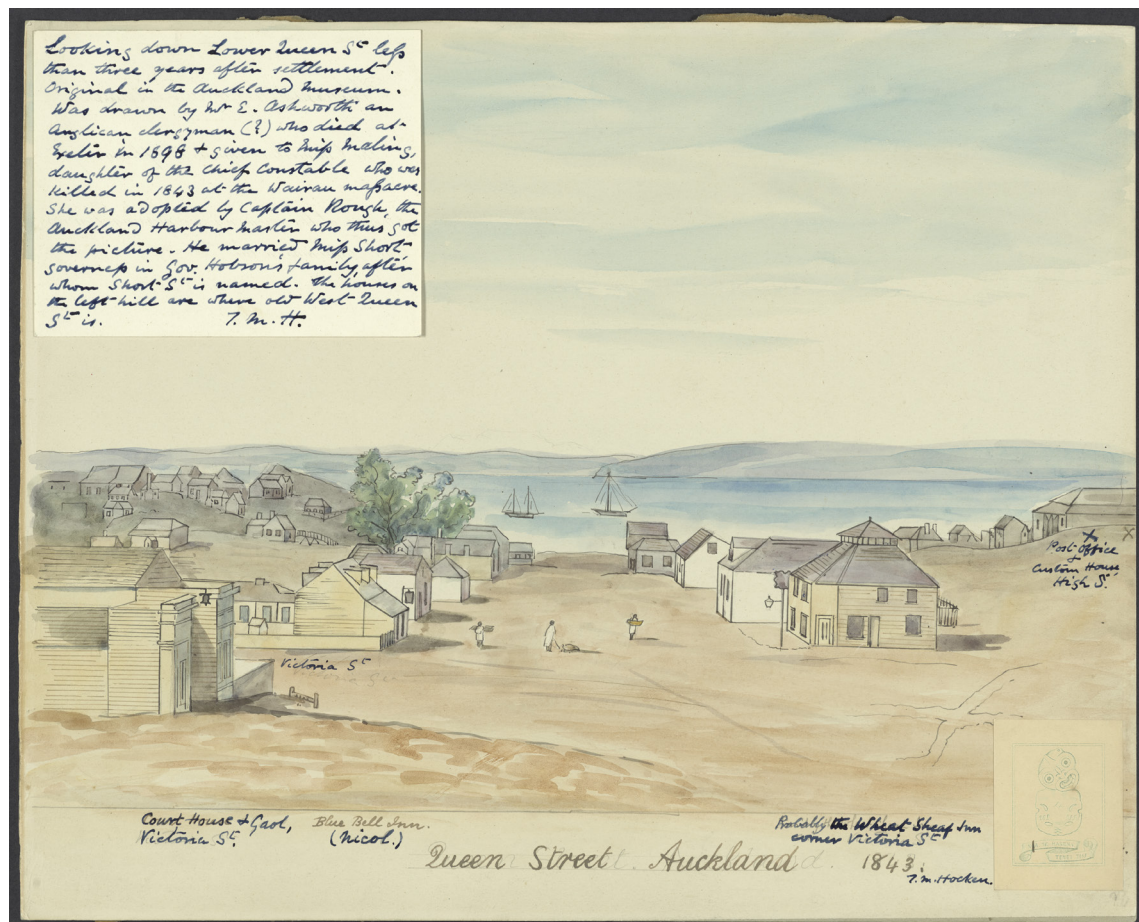 Looking down Lower Queen St less
than three years after settlement.
Original in the Auckland Museum.
Was drawn by Mr E. Ashworth an
Anglican clergyman (?) who died at
Exeter in 1898 & given to Miss Maling,
daughter of the Chief Constable who was
killed in 1843 at the Wairau massacre.
She was adopted by Captain Rough, the
Auckland Harbour Master who thus got
the picture. He married Miss Short
governess in Gov. Hobson's family, after
whom Short St is named. The houses on
the left hill are where old West Queen
St is. T. M. H.
Post-Office
+
Custom House
High St.
Victoria St
Court House & Gaol,
Victoria St.
Blue Bell Inn.
(Nicol.)
Probably the Wheat Sheaf Inn
corner Victoria St
Queen Street. Auckland. 1843.
T. M. Hocken.